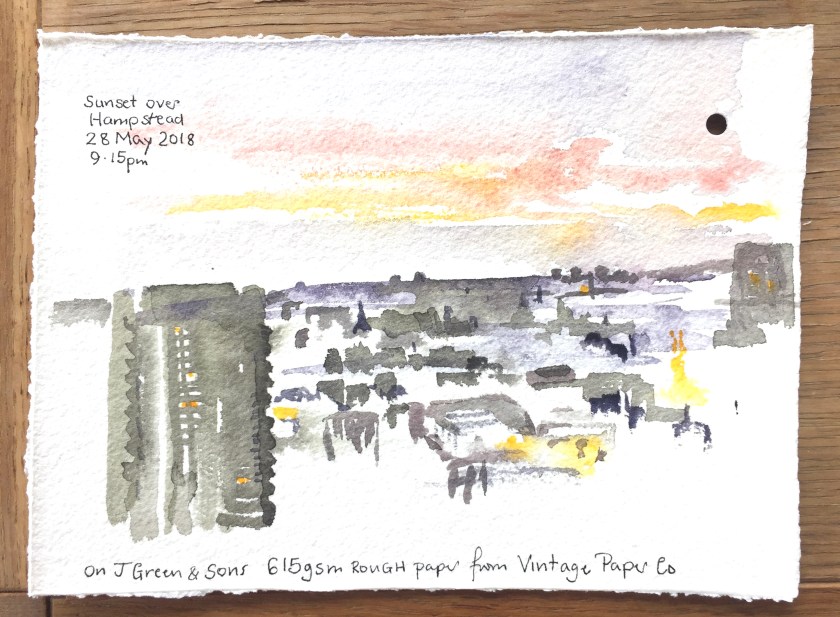 Sunset over
Hampstead
28 May 2018
9.15pm
on J Green & Sons 615gsm ROUGH paper from Vintage Paper Co